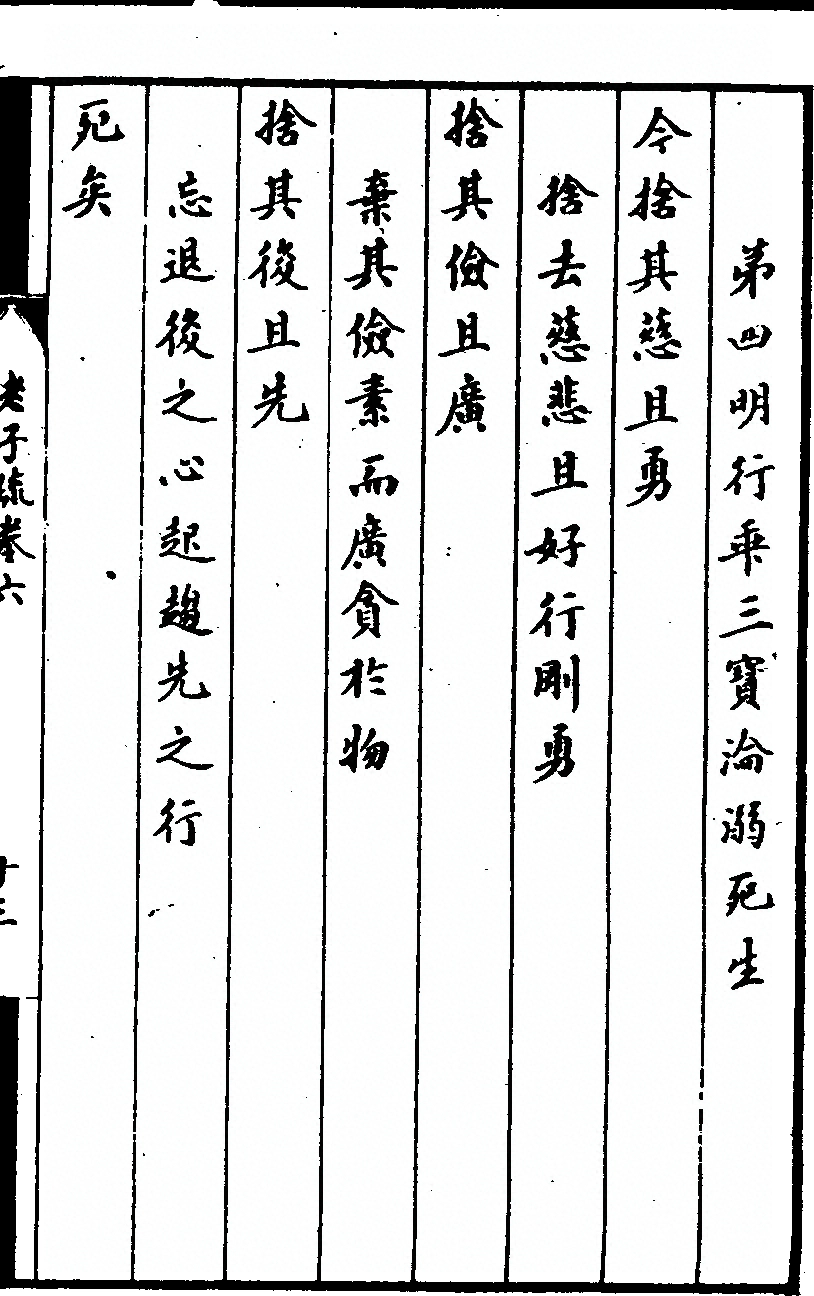 第四明行乖三寶淪溺死生
今捨其慈且勇
捨去慈悲且好行剛勇
捨其儉且廣
棄其儉素而廣貪於物
捨其後且先
忘退後之心起趨先之行
死矣
老子疏卷六
十三